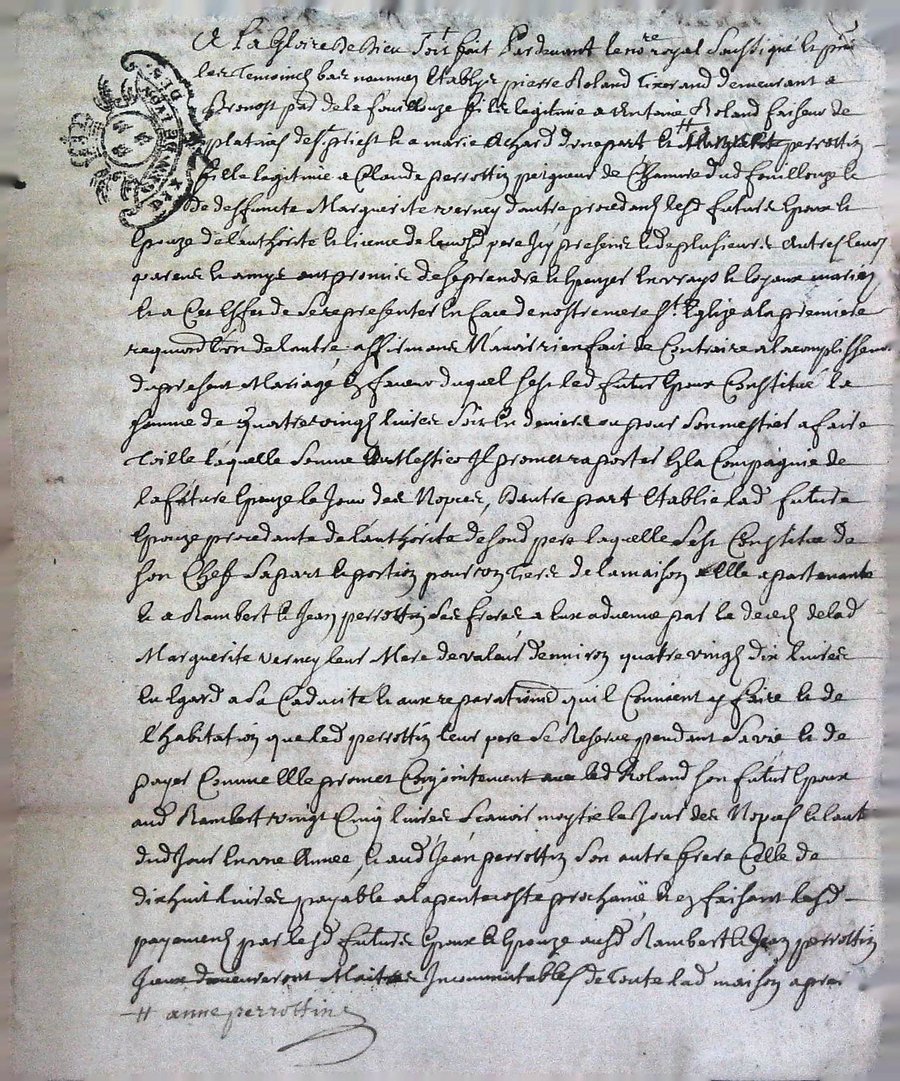 A La Gloire de Dieu Soit fait Pardevant le no.re royal Soubsigné & pnt
les Temoincs bas nommez Etablys pierre Roland Tixerand demeurant a
Bronost par de la fouillouze fils legitime a Antoine Roland faiseur de
platains de St priest & a marie Achard d'une part & # perrottin
fille legitime a Claude perrottin peigneur de Chamvre dud fouillouze &
De desfuncte Marguerite verney d'autre procedans lesd futurs Epoux &
Epouze de l'authorité & licence de leursd pere Icy presens & de plusieurs autres leurs
parens & amys ont promis de se prendre & Epouzer en vrays & loyaux mariez
& a Cet Effet de Se representer En face de nostre mere Ste Eglize a la premiere
requon L'un de l'autre affirmans N'avoir rien fait de Contraire a l'acomplissemt
du present Mariage En faveur duquel s'est led futur Epoux Constitué la
somme de Quatre vingts livres Soit En deniers ou pour Son mestier a faire
Toille laquelle Somme & Mestier Il promet raporter En la Compagnie de
la future Epouze le Jour des Nopces, D'autre part Etablie lad future
Epouze procedante de l'authorité de sond pere laquelle s'est Constitué de
son Chef Sa part & portion pour un Tiers de la maison a Elle apartenante
& a Rambert & Jean perrottin Ses freres a Eux advenue par le deceds de lad
Marguerite verney leur Mere de valeur d'environ quatre vingts dix livres
Eu Egard a Sa Caducité & aux reparations qu'il Convient y faire & de
l'habitation que led perrottin leur pere Se Reserve pendant Sa vie & de
payer Comme Elle promet Conjointement avec led Roland son futur Epoux
aud Rambert vingt Cinq livres Scavoir moytié le Jour des Nopces & l'autre
dud Jour En une Année, & aud Jean perrottin Son autre frere Celle de
dix huit livres payable a la pentecoste prochaine & en faisant lesd
payements par lesd futurs Epoux & Epouze ausd Rambert & Jean perrottin
Iceux demeureront Maitres Incommutables de Toute lad maison apres
# anne perrottin